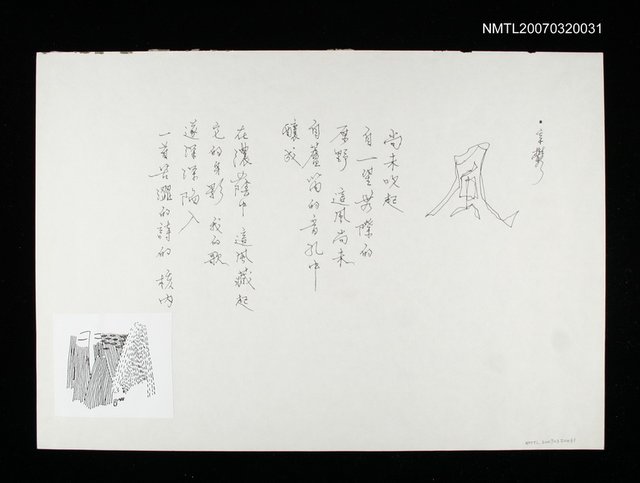 NMTL20070320031
風
尚未吹起
自一望無際的
原野 這風尚未
自蘆笛的音孔中
釀成
在濃蔭中 這風藏起
它的身影 我的歌
遂深深陷入
一首苦澀的詩的核內
NMTL 20070320031